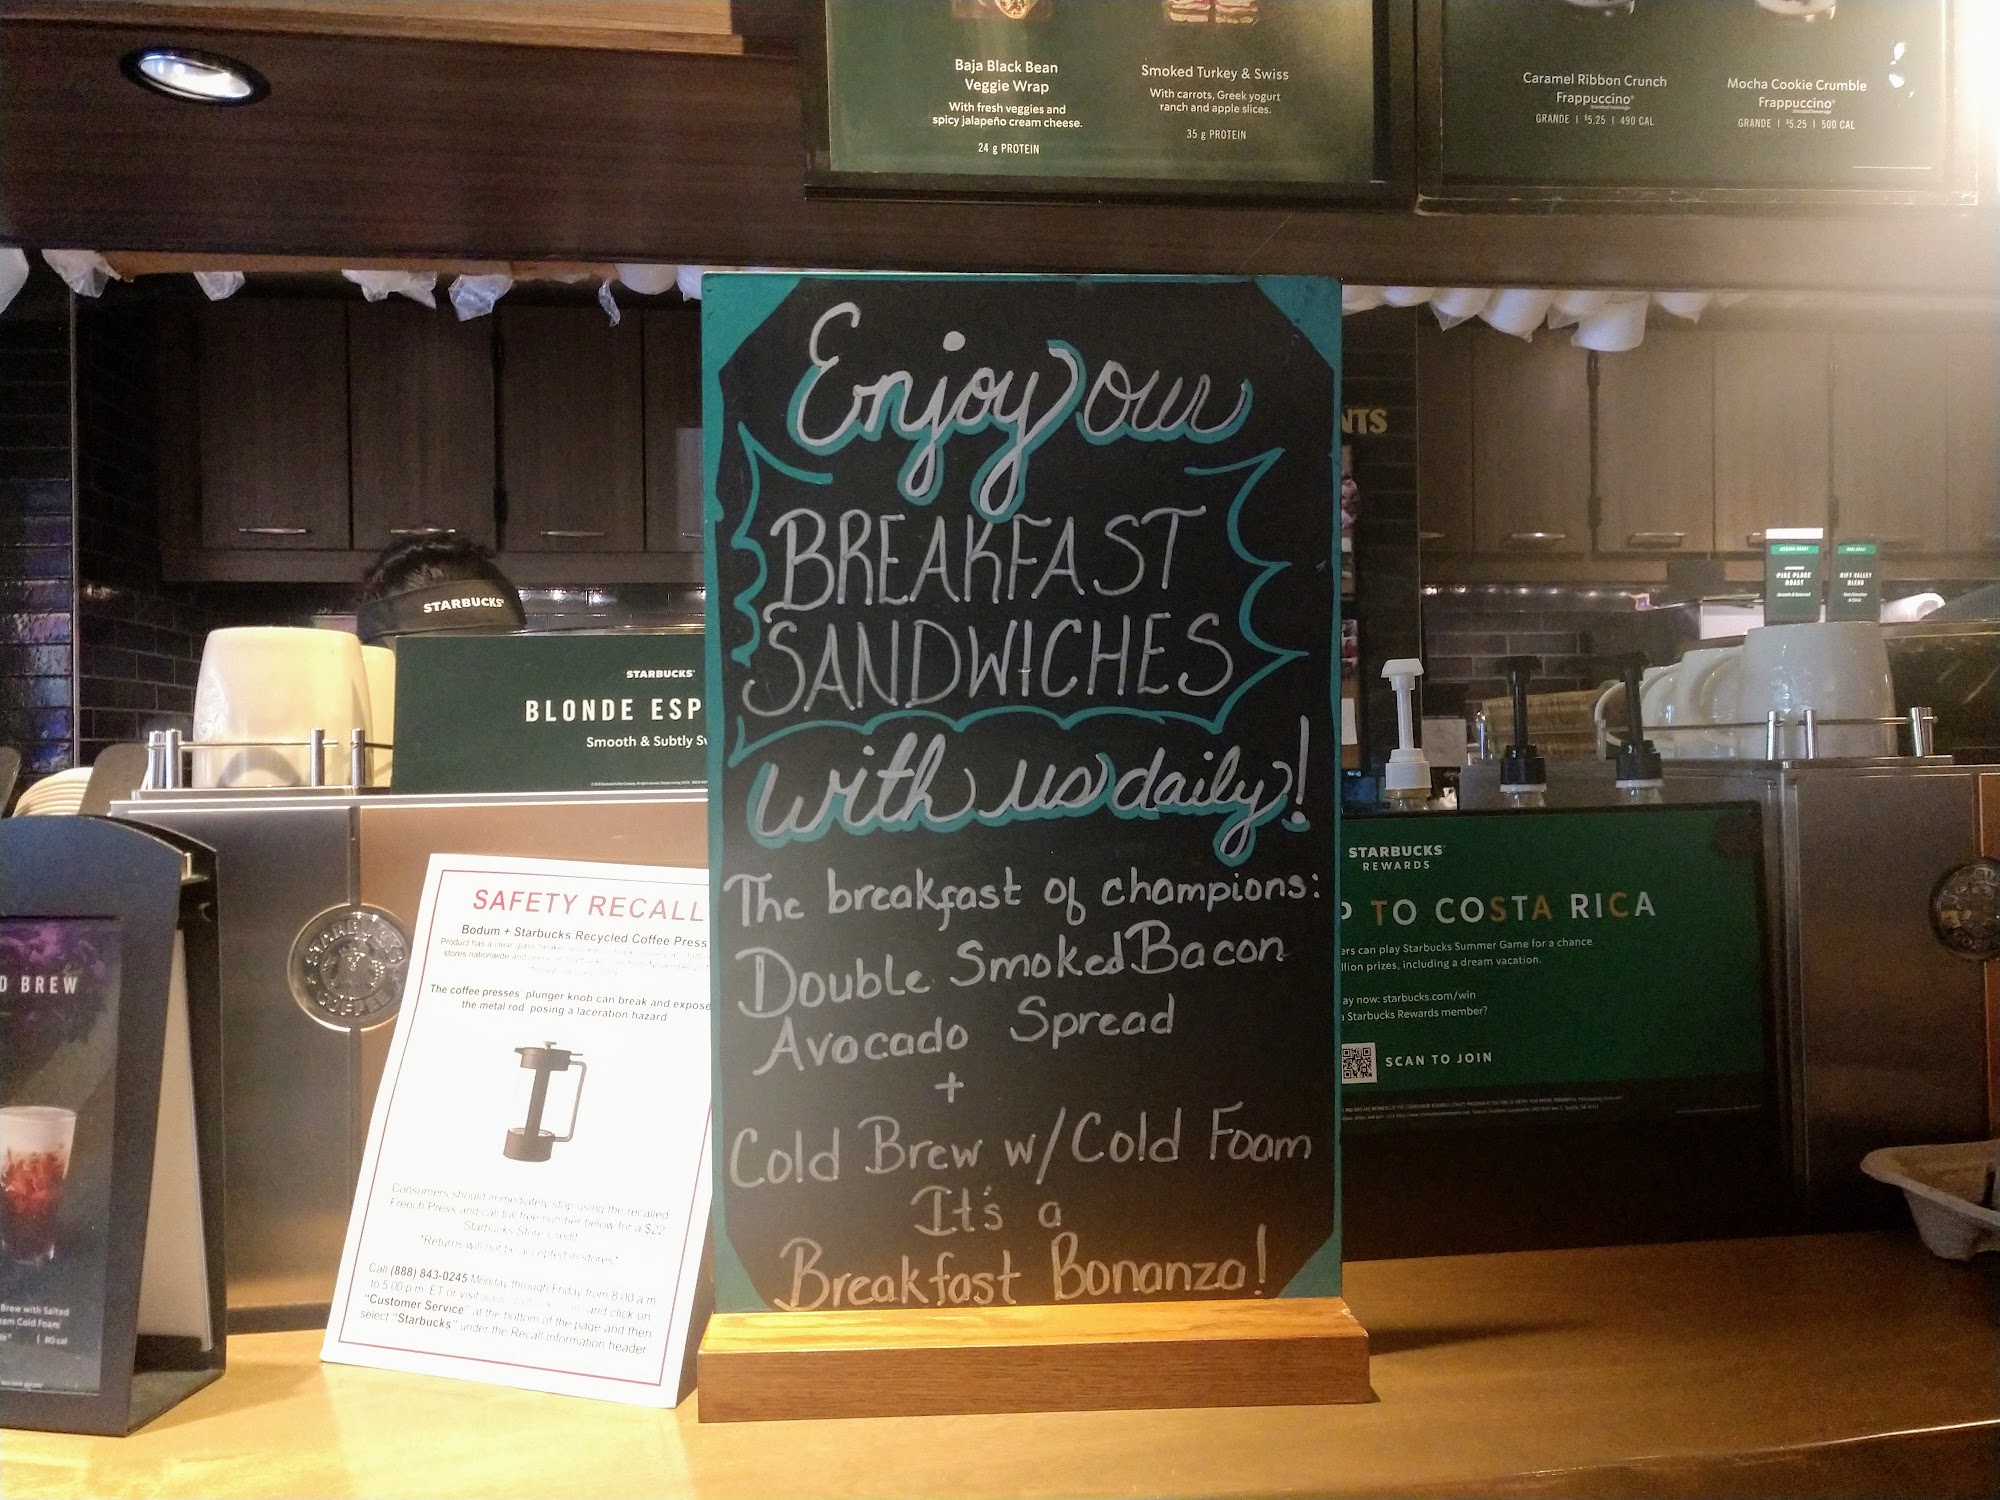 Baja Black Bean
Veggie Wrap
With fresh veggies and
spicy jalapeño cream cheese.
24 g PROTEIN
Smoked Turkey & Swiss
With carrots, Greek yogurt
ranch and apple slices.
35 g PROTEIN
Caramel Ribbon Crunch
Frappuccino®
GRANDE | $5.25 | 490 CAL
Mocha Cookie Crumble
Frappuccino®
GRANDE | $5.25 | 500 CAL
Enjoy our
BREAKFAST
SANDWICHES
with us daily!
The breakfast of champions:
Double Smoked Bacon
Avocado Spread
+
Cold Brew w/Cold Foam
It's a
Breakfast Bonanza!
NTS
STARBUCKS®
STARBUCKS®
BLONDE ESP
Smooth & Subtly Sw
PIKE PLACE
ROAST
RIFT VALLEY
BLEND
STARBUCKS
COFFEE
SAFETY RECALL
Bodum + Starbucks Recycled Coffee Press
The coffee presses plunger knob can break and expose
the metal rod posing a laceration hazard
Consumers should immediately stop using the recalled
French Press and call toll free number below for a $22
Starbucks Store Credit
*Returns will not be accepted in stores*
Call (888) 843-0245 Monday through Friday from 8:00 a.m.
to 5:00 p.m. ET or visit and click on
"Customer Service" at the bottom of the page and then
select "Starbucks" under the Recall Information header
D BREW
Brew with Salted
am Cold Foam
80 cal
STARBUCKS®
REWARDS
P TO COSTA RICA
ers can play Starbucks Summer Game for a chance
llion prizes, including a dream vacation.
ay now: starbucks.com/win
a Starbucks Rewards member?
SCAN TO JOIN